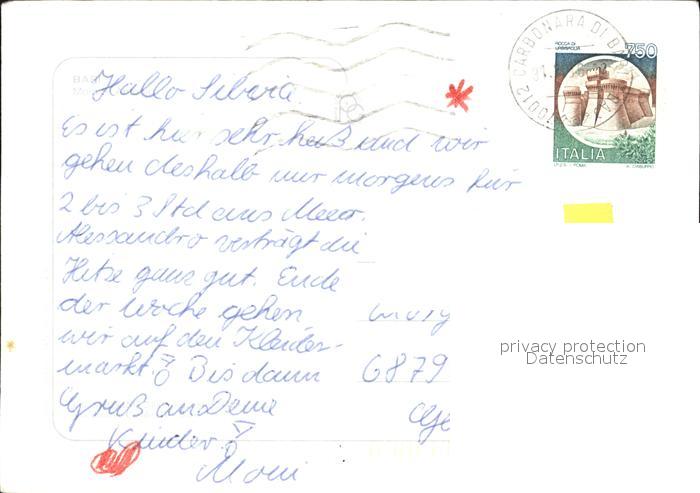 CARBONARA DI BA
70012
ROCCA DI
URBISAGLIA
750
ITALIA
BARI
Hallo Silvia
Es ist hier sehr heiß und wir
gehen deshalb nur morgens für
2 bis 3 Std ans Meer.
Alessandro verträgt die
Hitze ganz gut. Ende
der Woche gehen
wir auf den Kleider-
markt. Bis dann
6879
Gruß an Deine
Kinder
Moni
privacy protection
Datenschutz